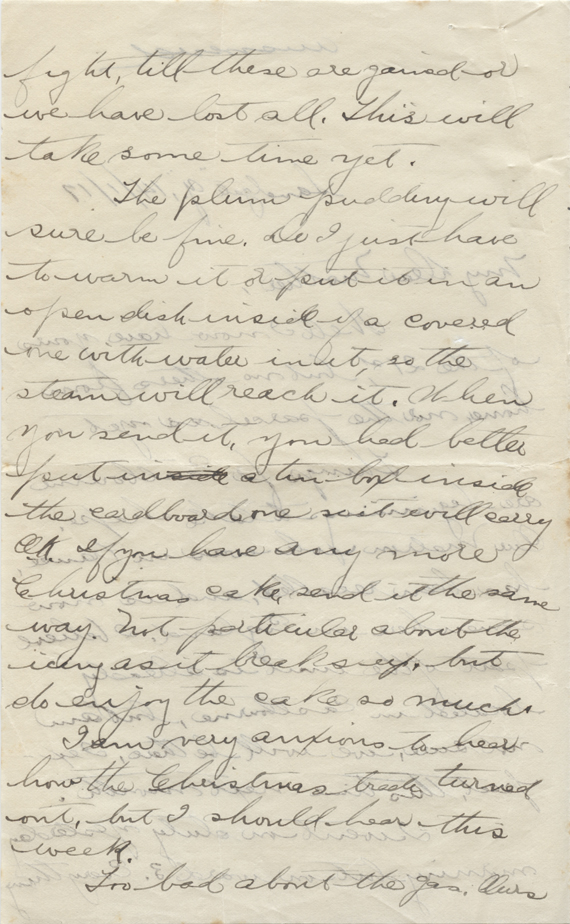 fight, till these are gained or
we have lost all. This will
take some time yet.
The plum pudding will
sure be fine. Do I just have
to warm it or put it in an
open dish inside of a covered
one with water in it so the
steam will reach it. When
you send it, you had better
put inside a tin box inside
the cardboard one so it will carry
O.K. If you have any more
Christmas cake, send it the same
way. Not particular about the
icing as it breaks up, but
do enjoy the cake so much.
I am very anxious to hear
how the Christmas trade turned
out, but I should hear this
week.
Too bad about the gas. Ours